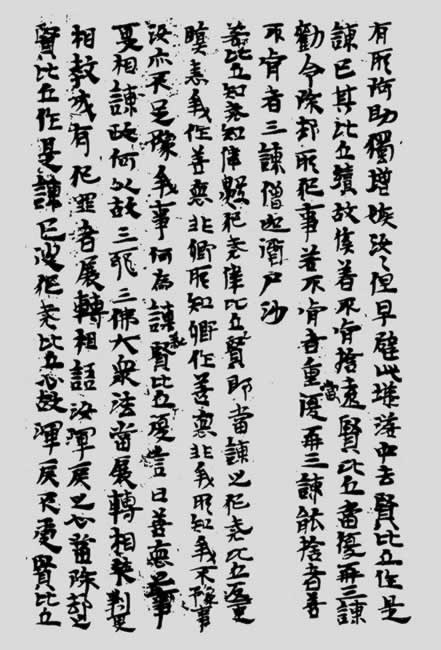 有所阿助獨增嫉汝〻但早避此墟落中去賢比丘作是
諫已其比丘續故俟善不肯捨遠賢比丘當復再三諫
勸令除却所犯事若不肯者當重復再三諫能捨者善
不肯者三諫僧伽衛尸沙
若比丘知表知律犯表律比丘賢即當諫之犯表比丘返更
瞋恚我作善惡非卿所知卿作善惡非我所知我不豫事
汝亦不足豫我事何為諫教賢比丘復言曰善惡之事
要相諫政何以故三耶三佛大衆法當展轉相更
相教戒有犯罪者展轉相語汝渾戾之心首除却之
賢比丘作是諫已犯表比丘心故渾戾不受賢比丘